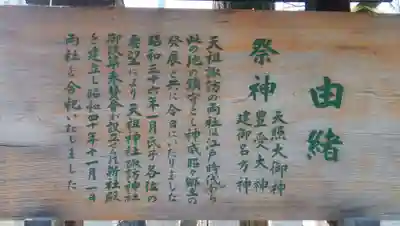 由緒
祭神
天照大御神
豊受大神
建御名方神
天祖諏訪の両社は江戸時代から
此の地の鎮守とし神威赫々郷土の
発展と共に今日にいたりました
昭和三十六年一月氏子各位の
希望により天祖神社諏訪神社
御改築奉賛会が設立され新社殿
を建立し昭和四十年十一月一日
両社を合祀いたしました